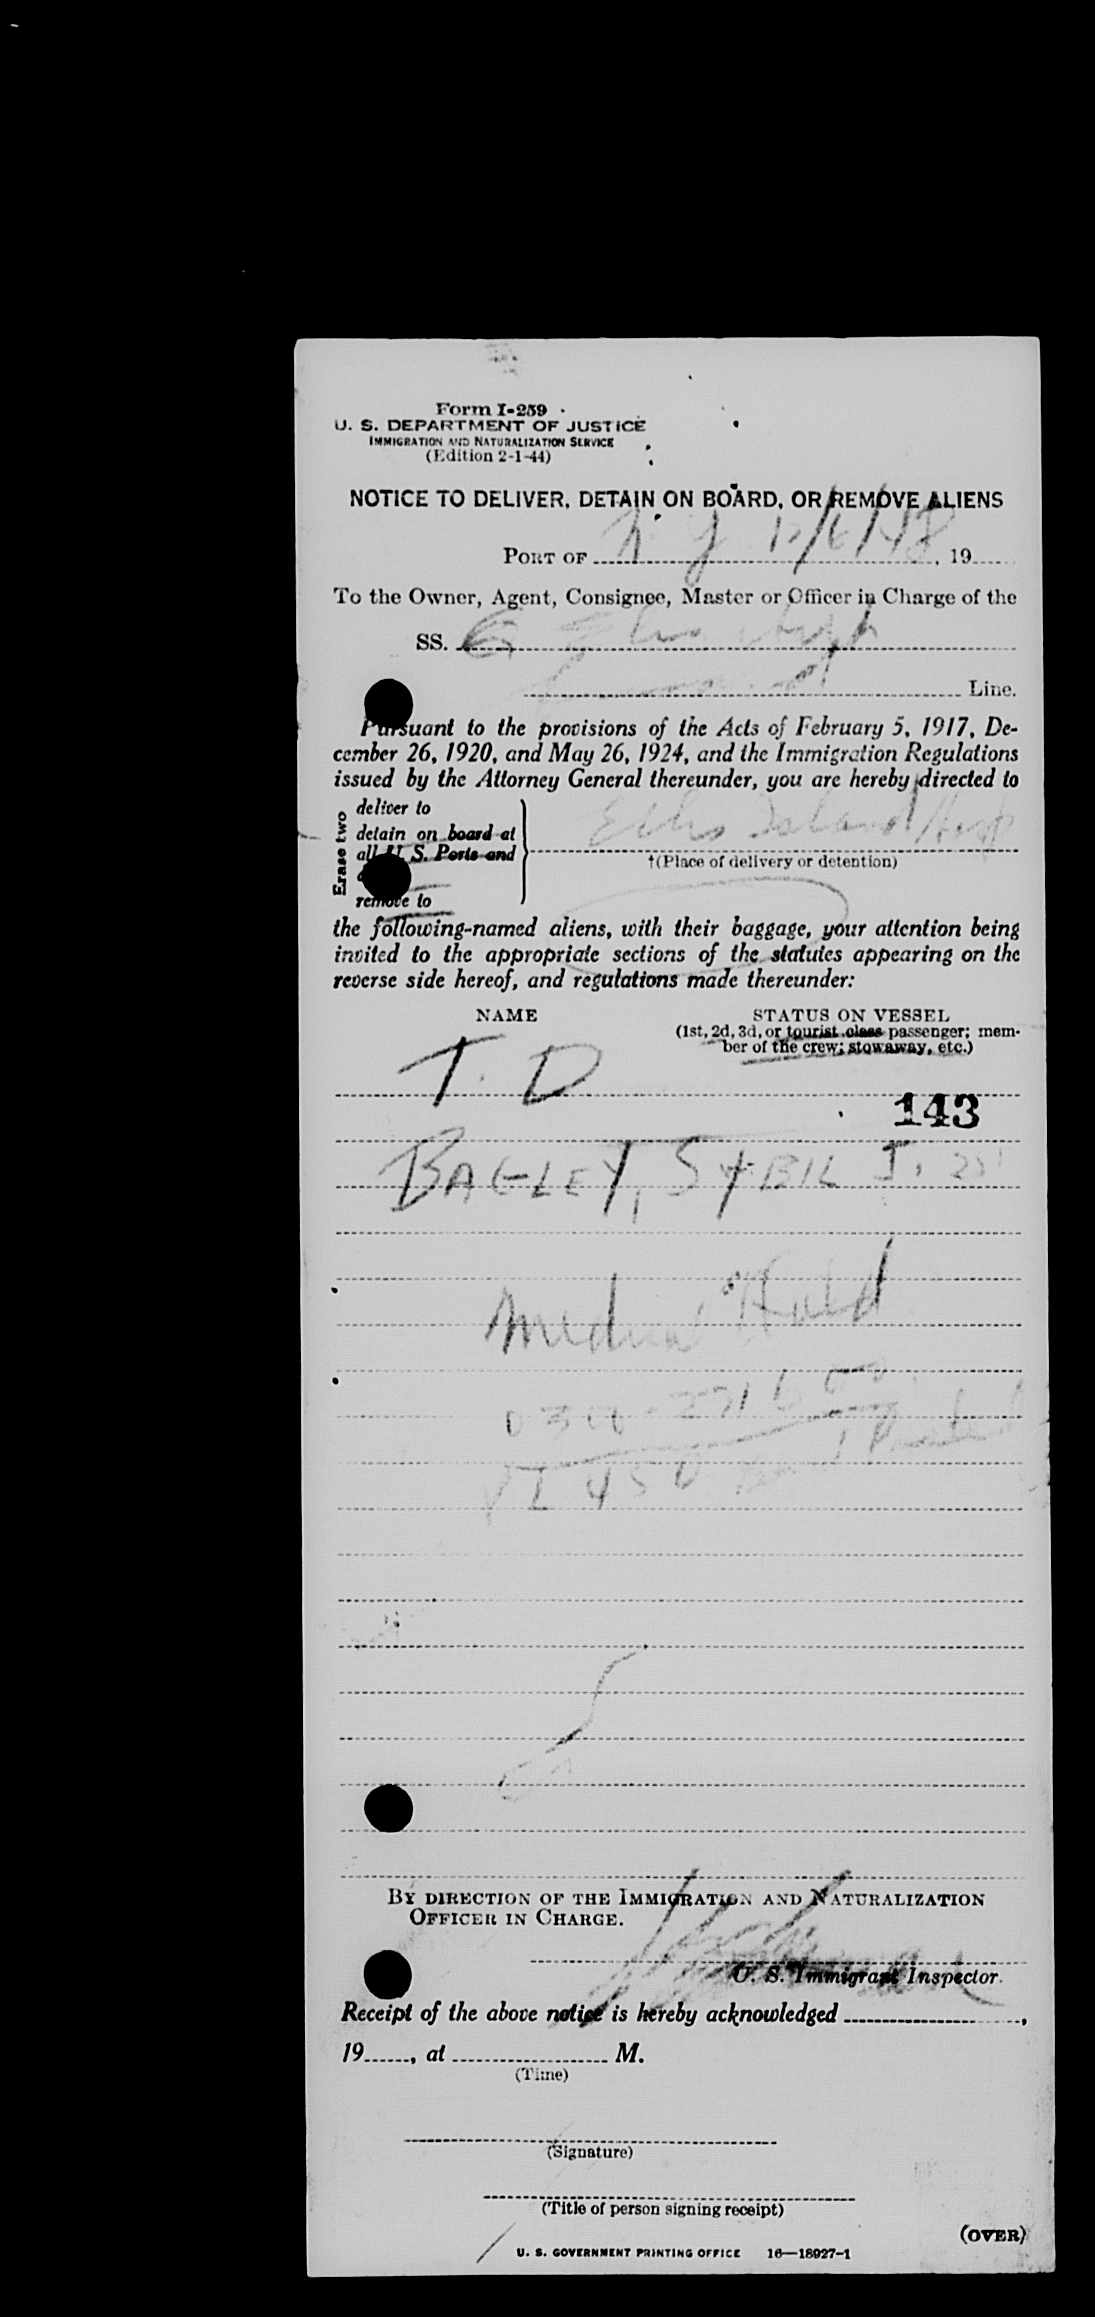 Form I-259
U. S. DEPARTMENT OF JUSTICE
IMMIGRATION AND NATURALIZATION SERVICE
(Edition 2-1-44)
NOTICE TO DELIVER, DETAIN ON BOARD, OR REMOVE ALIENS
PORT OF N Y 12/6/48, 19
To the Owner, Agent, Consignee, Master or Officer in Charge of the
SS.
Line.
Pursuant to the provisions of the Acts of February 5, 1917, De-
cember 26, 1920, and May 26, 1924, and the Immigration Regulations
issued by the Attorney General thereunder, you are hereby directed to
Erase two
deliver to
detain on board at
all U. S. Ports and
remove to
Ellis Island Hosp
†(Place of delivery or detention)
the following-named aliens, with their baggage, your attention being
invited to the appropriate sections of the statutes appearing on the
reverse side hereof, and regulations made thereunder:
NAME
STATUS ON VESSEL
(1st, 2d, 3d, or tourist class passenger; mem-
ber of the crew; stowaway, etc.)
T. D
143
BAGLEY, SYBIL J.
Medical Hold
BY DIRECTION OF THE IMMIGRATION AND NATURALIZATION
OFFICER IN CHARGE.
U. S. Immigrant Inspector.
Receipt of the above notice is hereby acknowledged ,
19 , at M.
(Time)
(Signature)
(Title of person signing receipt)
(OVER)
U. S. GOVERNMENT PRINTING OFFICE 16—18927-1